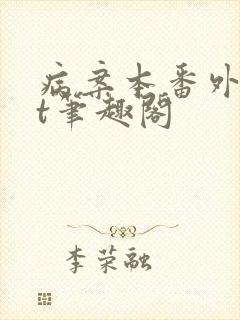 病案本番外
t笔趣阁
李荣融